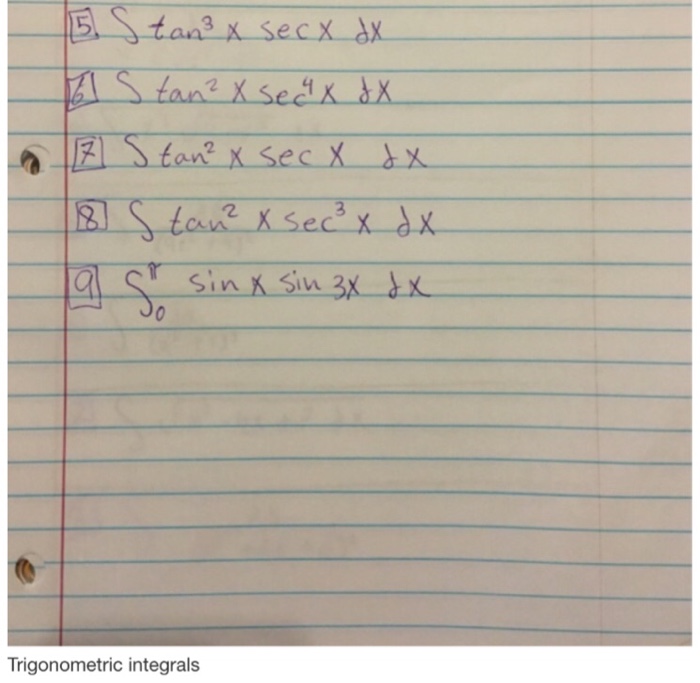 5. ∫ tan³ x sec x dx
6 ∫ tan² x sec⁴ x dx
7 ∫ tan² x sec x dx
8 ∫ tan² x sec³ x dx
9 ∫₀^π sin x sin 3x dx
Trigonometric integrals